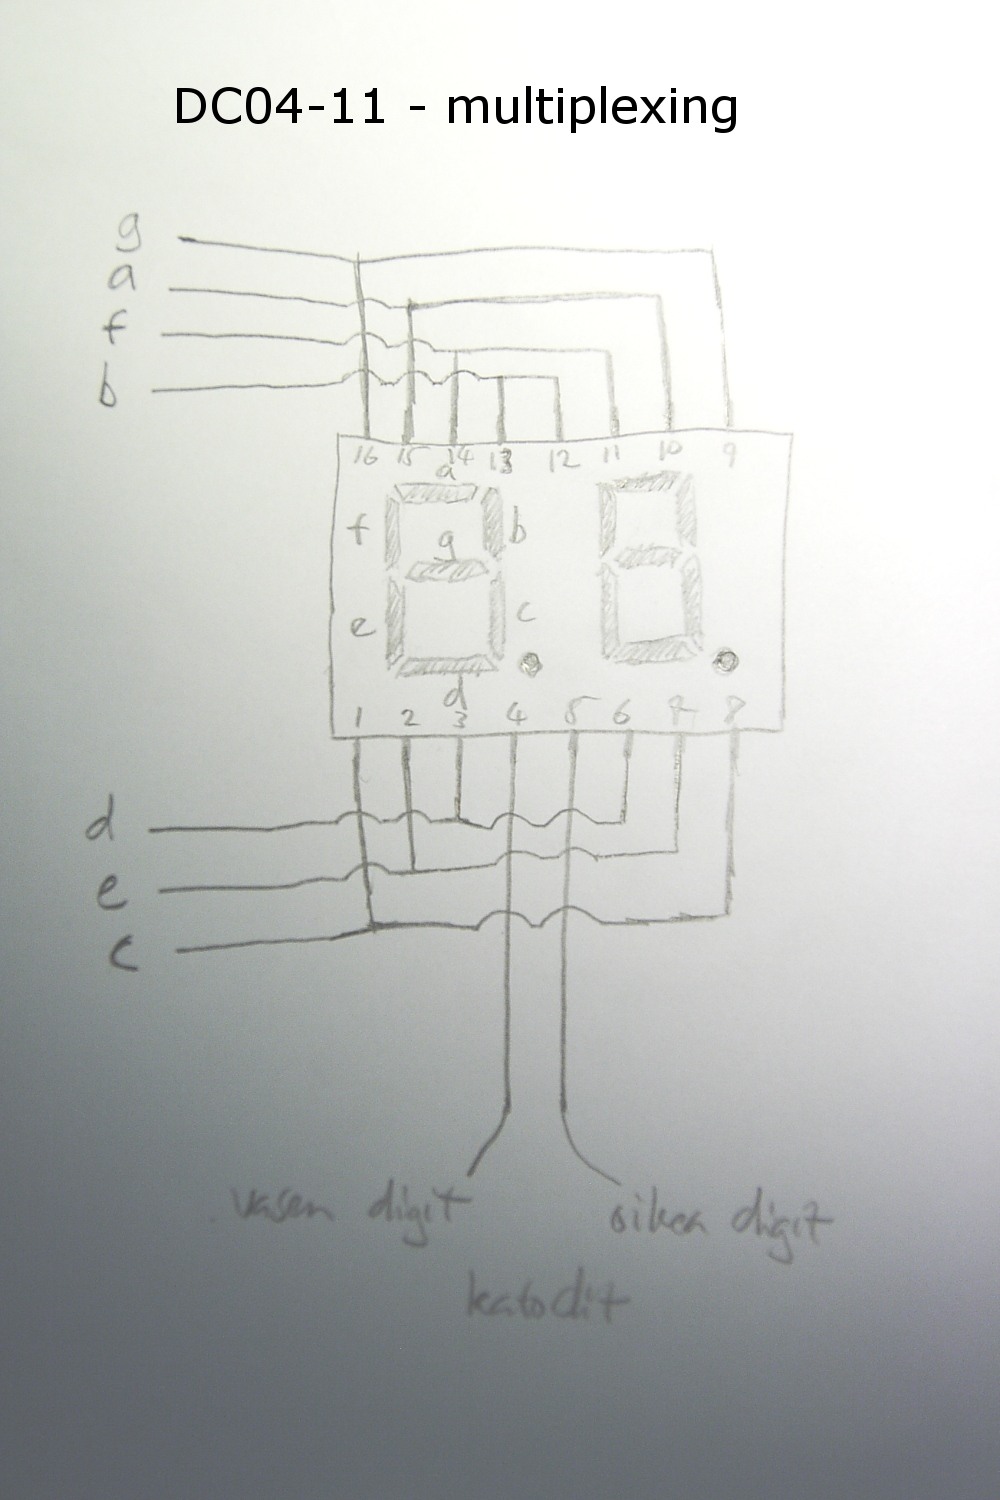 DC04-11 - multiplexing
g
a
f
b
16 15 14 13 12 11 10 9
a
f b
g
e c
d
1 2 3 4 5 6 7 8
d
e
c
vasen digit oikea digit
katodit